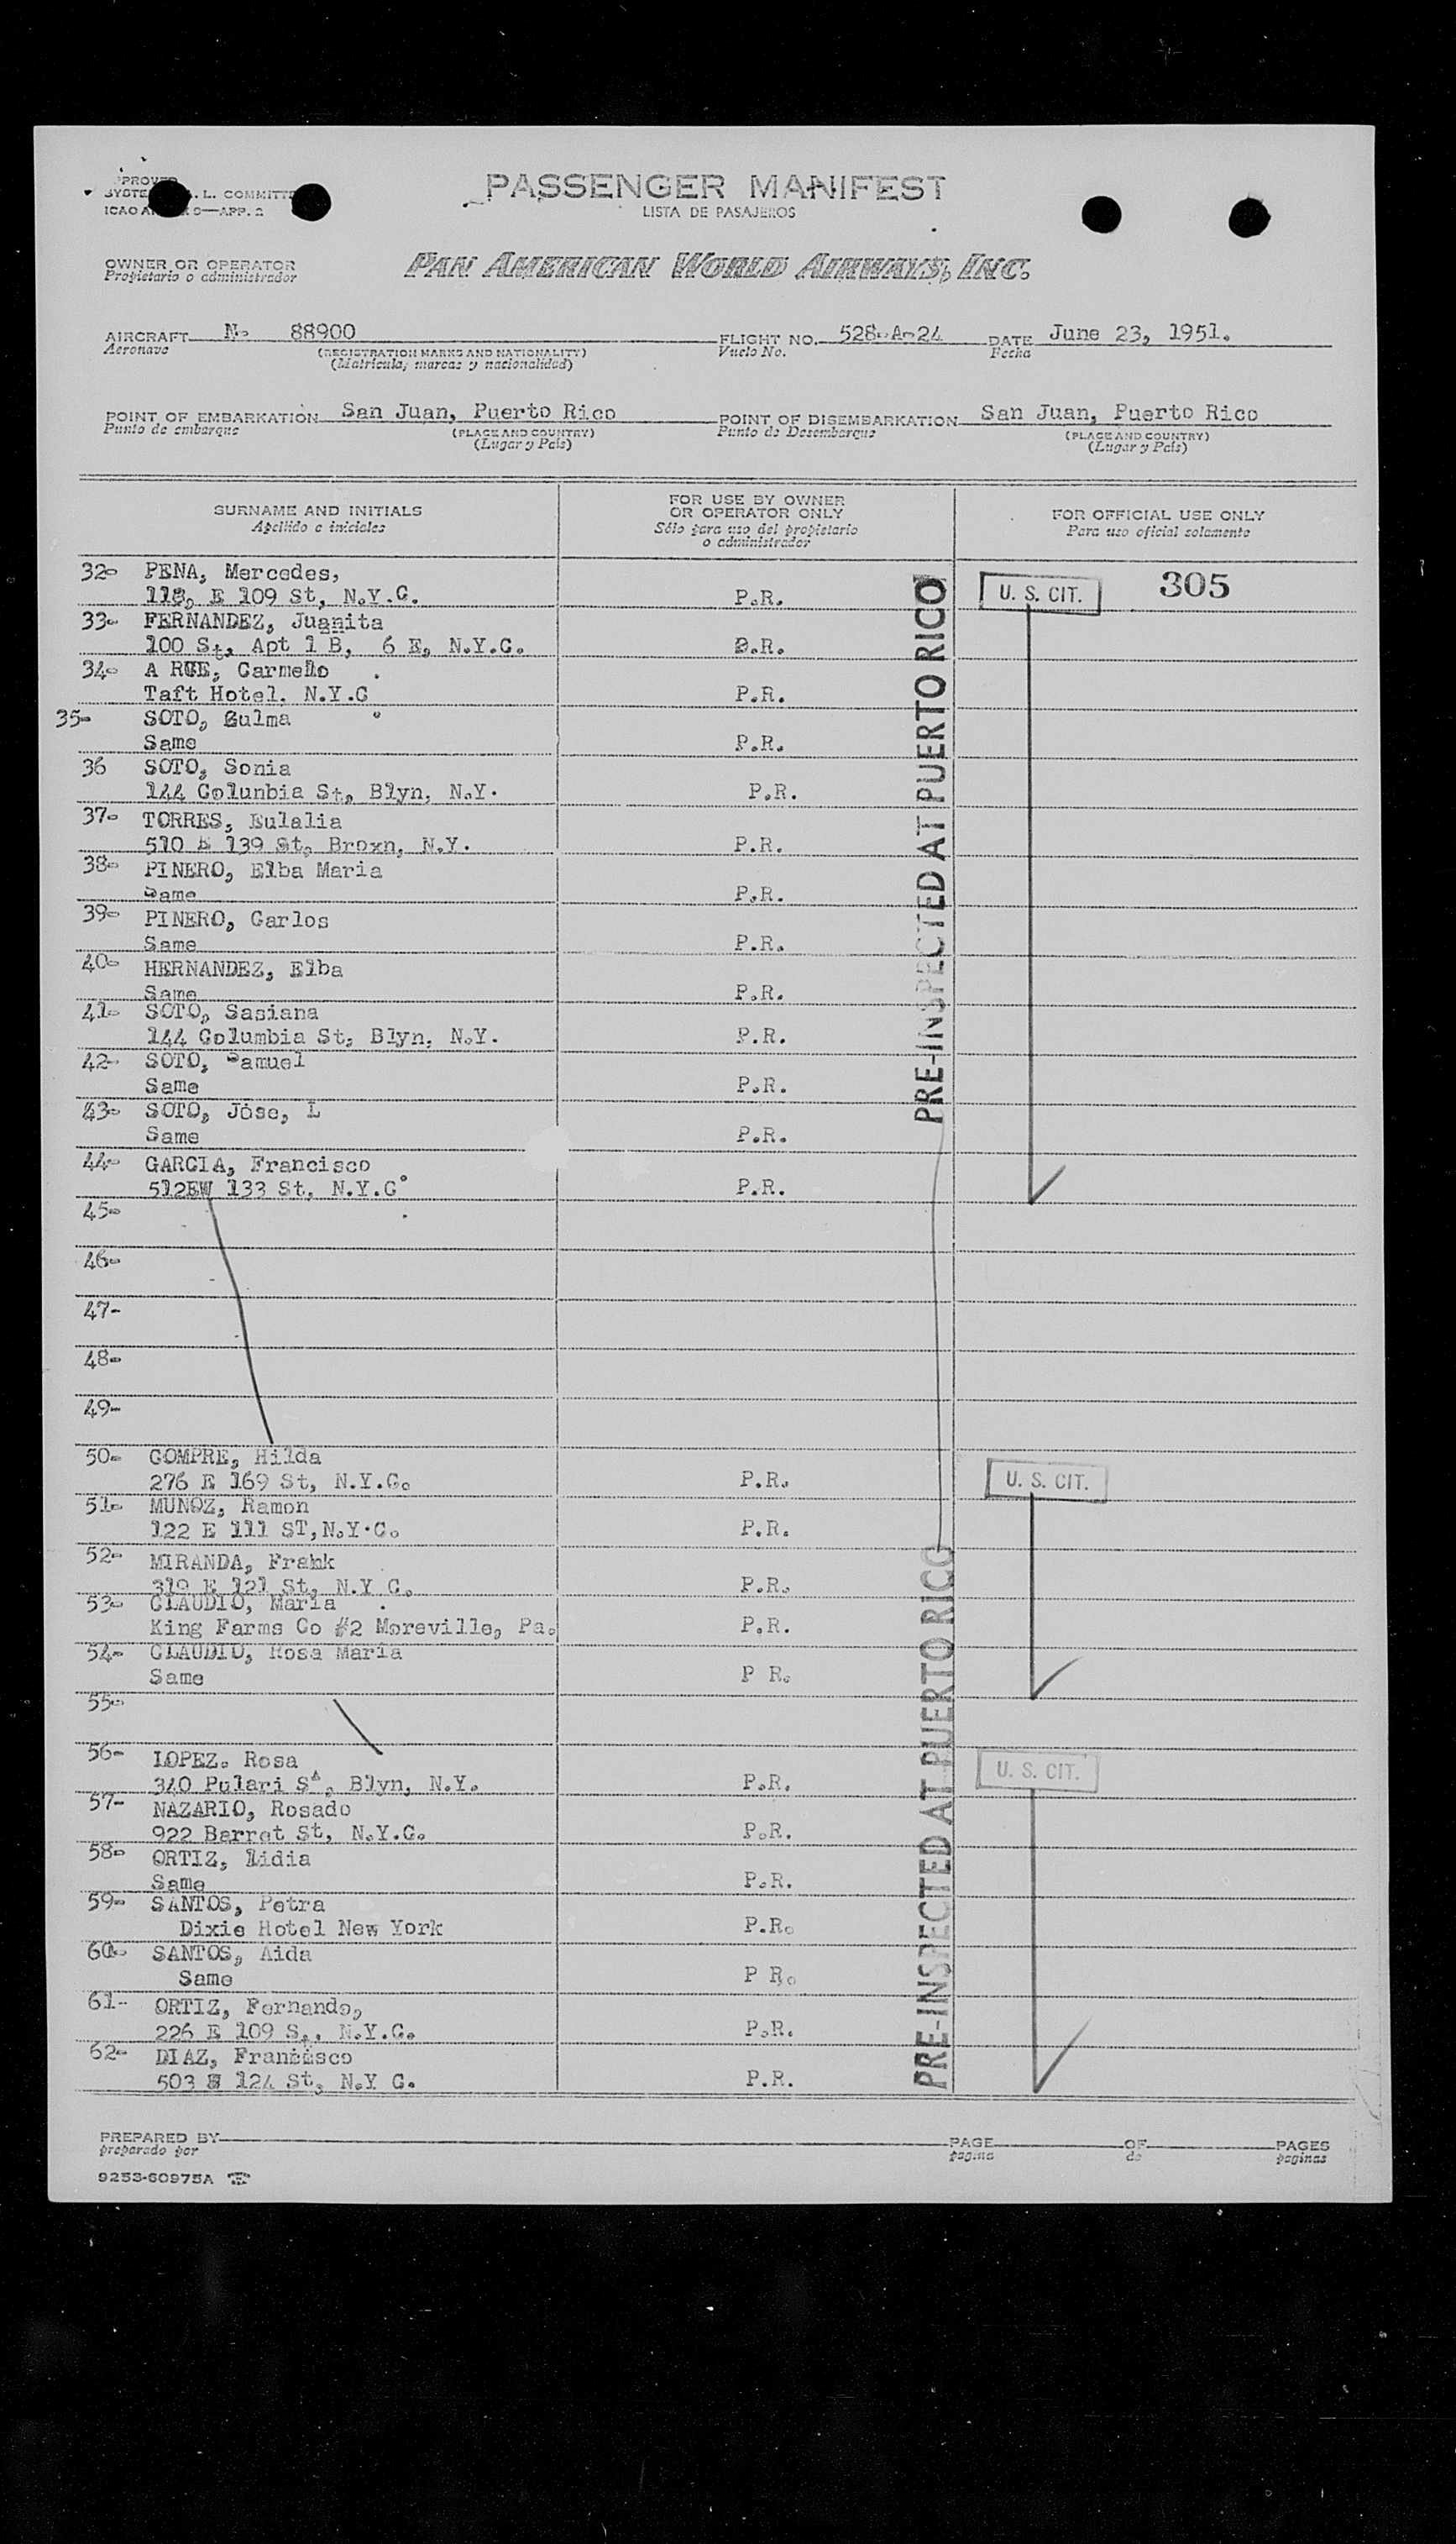 PASSENGER MANIFEST
LISTA DE PASAJEROS
ICAO
OWNER OR OPERATOR
Propietario o administrador
PAN AMERICAN WORLD AIRWAYS, INC.
AIRCRAFT N- 88900 FLIGHT NO. 528-A-24 DATE June 23, 1951.
Aeronave (REGISTRATION MARKS AND NATIONALITY) Vuelo No. Fecha
(Matricula, marcas y nacionalidad)
POINT OF EMBARKATION San Juan, Puerto Rico POINT OF DISEMBARKATION San Juan, Puerto Rico
Punto de embarque (PLACE AND COUNTRY) Punto de Desembarque (PLACE AND COUNTRY)
(Lugar y País) (Lugar y País)
SURNAME AND INITIALS FOR USE BY OWNER OR OPERATOR ONLY FOR OFFICIAL USE ONLY
Apellido e iniciales Sólo para uso del propietario o administrador Para uso oficial solamente
32- PENA, Mercedes, U. S. CIT. 305
118, E 109 St, N.Y.C. P.R.
33- FERNANDEZ, Juanita
100 St, Apt 1 B, 6 E, N.Y.C. P.R.
34- Carmelo
Taft Hotel, N.Y.C P.R.
35- SOTO, Zulma
Same P.R.
36 SOTO, Sonia
144 Colunbia St, Blyn, N.Y. P.R.
37- TORRES, Eulalia
510 E 139 St, Broxn, N.Y. P.R.
38- PINERO, Elba Maria
Same P.R.
39- PINERO, Carlos
Same P.R.
40- HERNANDEZ, Elba
Same P.R.
41- SOTO, Sasiana
144 Columbia St, Blyn, N.Y. P.R.
42- SOTO, Samuel
Same P.R.
43- SOTO, Jose, L
Same P.R.
44- GARCIA, Francisco
133 St, N.Y.C P.R.
45-
46-
47-
48-
49-
50- COMPRE, Hilda U. S. CIT.
276 E 169 St, N.Y.C. P.R.
51- MUNOZ, Ramon
122 E 111 ST, N.Y.C. P.R.
52- MIRANDA, Frank
319 E 121 St, N.Y C. P.R.
53- CLAUDIO, Maria
King Farms Co #2 Moreville, Pa. P.R.
54- CLAUDIO, Rosa Maria
Same P R.
55-
56- LOPEZ. Rosa U. S. CIT.
340 Pulari St, Blyn, N.Y. P.R.
57- NAZARIO, Rosado
922 Barret St, N.Y.C. P.R.
58- ORTIZ, Lidia
Same P.R.
59- SANTOS, Petra
Dixie Hotel New York P.R.
60- SANTOS, Aida
Same P R.
61- ORTIZ, Fernando,
226 E 109 S., N.Y.C. P.R.
62- DIAZ, Francisco
503 124 St, N.Y C. P.R.
PRE-INSPECTED AT PUERTO RICO
PRE-INSPECTED AT PUERTO RICO
PREPARED BY PAGE OF PAGES
preparado por pagina de paginas
9253-60975A